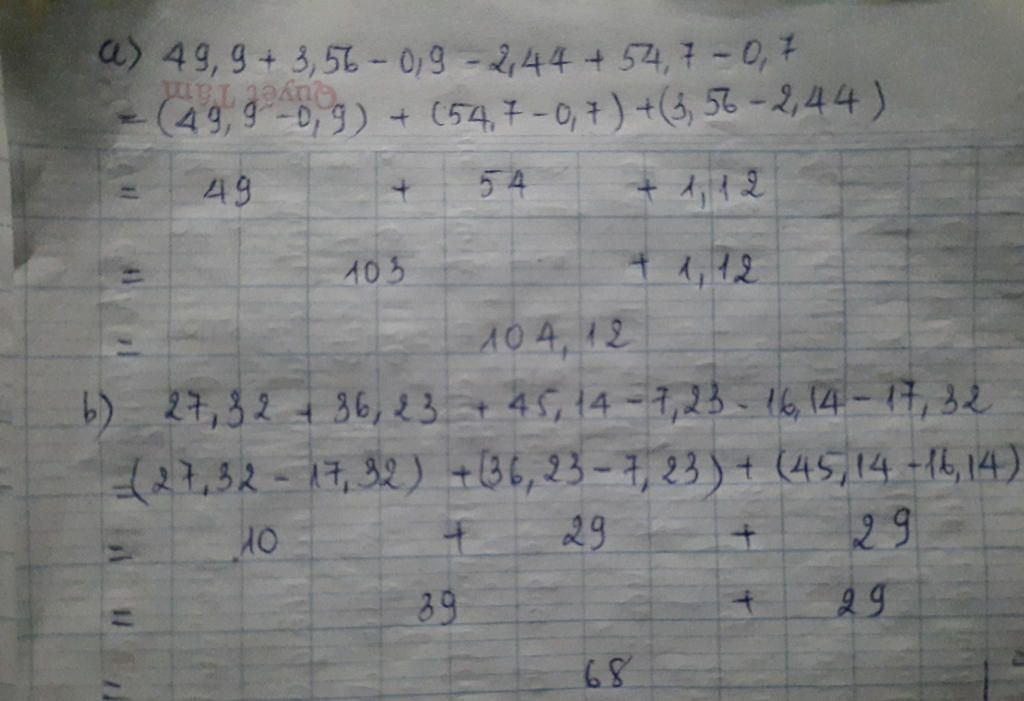 a) 49,9 + 3,56 - 0,9 - 2,44 + 54,7 - 0,7
Quyết Tâm
= (49,9 - 0,9) + (54,7 - 0,7) + (3,56 - 2,44)
= 49 + 54 + 1,12
= 103 + 1,12
= 104,12
b) 27,32 + 36,23 + 45,14 - 7,23 - 16,14 - 17,32
= (27,32 - 17,32) + (36,23 - 7,23) + (45,14 - 16,14)
= 10 + 29 + 29
= 39 + 29
= 68